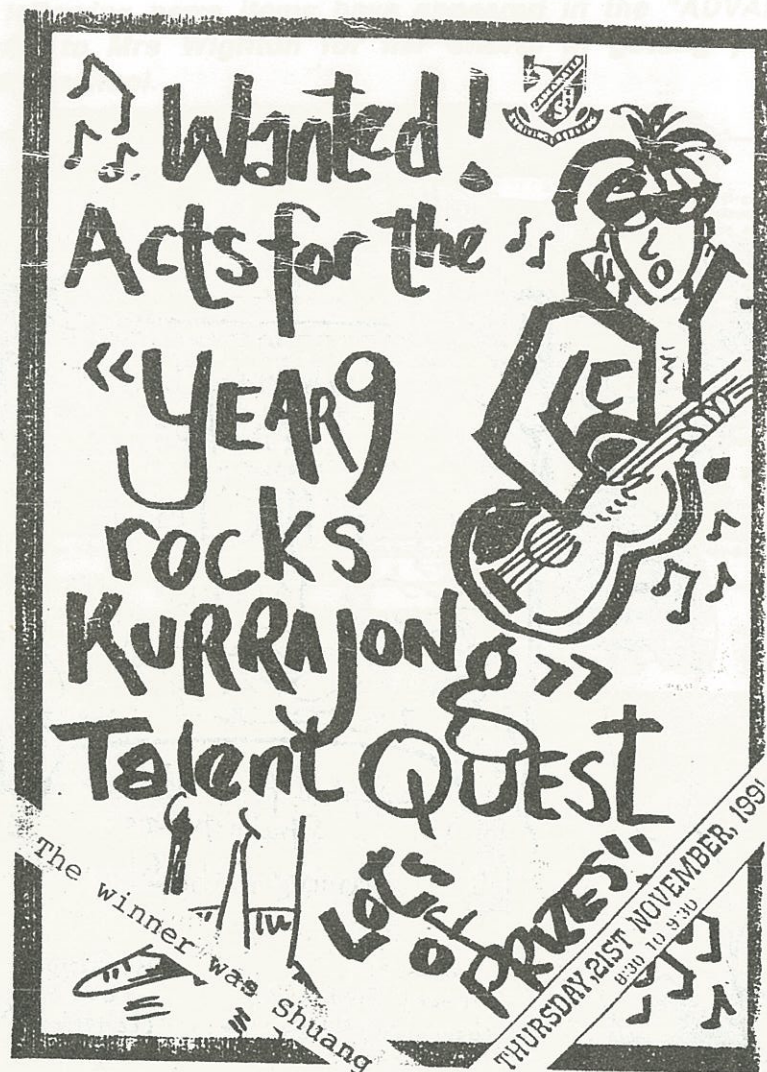 Wanted!
Acts for the
"YEAR 9
rocks
KURRAJONg"
Talent QUEST
LOTS
of
PRIZES!!
The winner was Shuang
THURSDAY,21ST NOVEMBER, 1991
8:30 TO 9:30